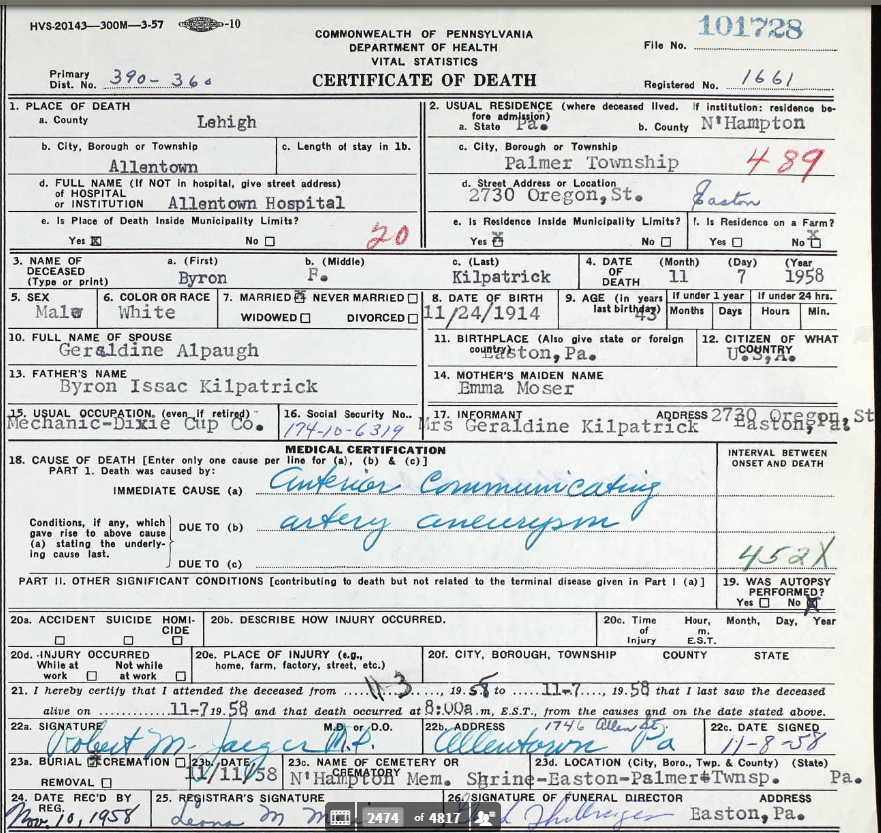 HVS-20143—300M—3-57 -10
COMMONWEALTH OF PENNSYLVANIA
DEPARTMENT OF HEALTH
VITAL STATISTICS
CERTIFICATE OF DEATH
101728
File No.
Primary
Dist. No. 390-360
Registered No. 1661
1. PLACE OF DEATH
a. County Lehigh
b. City, Borough or Township
Allentown
c. Length of stay in 1b.
d. FULL NAME (If NOT in hospital, give street address)
of HOSPITAL
or INSTITUTION Allentown Hospital
e. Is Place of Death Inside Municipality Limits?
Yes X No
20
2. USUAL RESIDENCE (where deceased lived. If institution: residence be-
fore admission)
a. State Pa. b. County N'Hampton
c. City, Borough or Township
Palmer Township 489
d. Street Address or Location
2730 Oregon,St. Easton
e. Is Residence Inside Municipality Limits?
Yes X No
f. Is Residence on a Farm?
Yes No X
3. NAME OF
DECEASED
(Type or print)
a. (First) b. (Middle) c. (Last)
Byron F. Kilpatrick
4. DATE
OF
DEATH
(Month) (Day) (Year
11 7 1958
5. SEX
Male
6. COLOR OR RACE
White
7. MARRIED X NEVER MARRIED
WIDOWED DIVORCED
8. DATE OF BIRTH
11/24/1914
9. AGE (in years
last birthday)
43
If under 1 year
Months Days
If under 24 hrs.
Hours Min.
10. FULL NAME OF SPOUSE
Geraldine Alpaugh
11. BIRTHPLACE (Also give state or foreign
country)
Easton,Pa.
12. CITIZEN OF WHAT
COUNTRY
U.S,A.
13. FATHER'S NAME
Byron Issac Kilpatrick
14. MOTHER'S MAIDEN NAME
Emma Moser
15. USUAL OCCUPATION. (even if retired)
Mechanic-Dixie Cup Co.
16. Social Security No..
174-10-6319
17. INFORMANT ADDRESS 2730 Oregon, St
Mrs Geraldine Kilpatrick Easton, Pa.
MEDICAL CERTIFICATION
18. CAUSE OF DEATH [Enter only one cause per line for (a), (b) & (c)]
PART 1. Death was caused by:
IMMEDIATE CAUSE (a) Anterior Communicating
INTERVAL BETWEEN
ONSET AND DEATH
Conditions, if any, which
gave rise to above cause
(a) stating the underly-
ing cause last.
DUE TO (b) artery aneurysm
DUE TO (c)
452X
PART II. OTHER SIGNIFICANT CONDITIONS [contributing to death but not related to the terminal disease given in Part I (a)]
19. WAS AUTOPSY
PERFORMED?
Yes No X
20a. ACCIDENT SUICIDE HOMI-
CIDE
20b. DESCRIBE HOW INJURY OCCURRED.
20c. Time
of
Injury
Hour,
m.
E.S.T.
Month, Day, Year
20d. INJURY OCCURRED
While at
work
Not while
at work
20e. PLACE OF INJURY (e.g.,
home, farm, factory, street, etc.)
20f. CITY, BOROUGH, TOWNSHIP COUNTY STATE
21. I hereby certify that I attended the deceased from ....11-3...., 19.58 to .....11-7...., 19.58 that I last saw the deceased
alive on ...........11-719.58 and that death occurred at 8:00a.m, E.S.T., from the causes and on the date stated above.
22a. SIGNATURE M.D. or D.O.
Robert M. Jaeger M.D.
22b. ADDRESS 1746 Allen St.
Allentown Pa
22c. DATE SIGNED
11-8-58
23a. BURIAL X CREMATION
REMOVAL
23b. DATE
11/11/58
23c. NAME OF CEMETERY OR
CREMATORY
N'Hampton Mem. Shrine-Easton-Palmer Twnsp. Pa.
23d. LOCATION (City, Boro., Twp. & County) (State)
24. DATE REC'D BY
REG.
Nov. 10, 1958
25. REGISTRAR'S SIGNATURE
Leona M
26. SIGNATURE OF FUNERAL DIRECTOR ADDRESS
Easton,Pa.
2474 of 4817